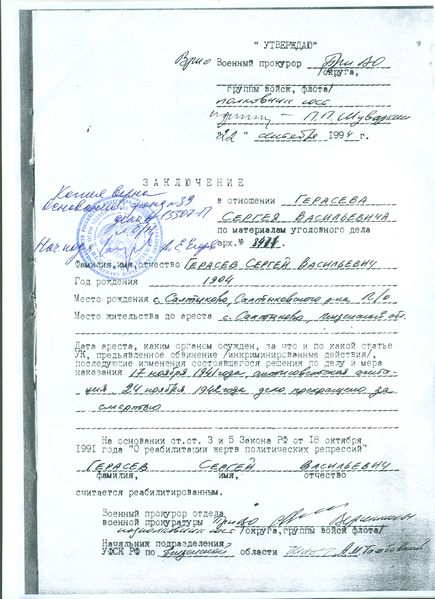 " УТВЕРЖДАЮ"
Врио Военный прокурор ПриВО
/округа,
группы войск, флота/
полковник юст
П.П. Шуваркин
"22" сентября 1994 г.
ЗАКЛЮЧЕНИЕ
Копия верна
в отношении ГЕРАСЕВА
СЕРГЕЯ ВАСИЛЬЕВИЧА
по материалам уголовного дела
арх.№
Фамилия,имя,отчество ГЕРАСЕВ СЕРГЕЙ ВАСИЛЬЕВИЧ
Год рождения 1904
Место рождения с. Салтыково, Салтыковского р-на П/о
Место жительства до ареста с. Салтыково, Пензенской обл.
Дата ареста, каким органом осужден, за что и по какой статье
УК, предъявленное обвинение /инкриминированные действия/,
последующие изменения состоявшегося решения по делу и мера
наказания 17 ноября 1941 года, антисоветская агита-
ция, 24 ноября 1942 года дело прекращено за
смертью
На основании ст.ст. 3 и 5 Закона РФ от 18 октября
1991 года "О реабилитации жертв политических репрессий"
ГЕРАСЕВ СЕРГЕЙ ВАСИЛЬЕВИЧ
фамилия, имя, отчество
считается реабилитированным.
Военный прокурор отдела
военной прокуратуры ПриВО
подполковник юст /округа,группы войск,флота/
Начальник подразделения
УФСК РФ по Пензенской области